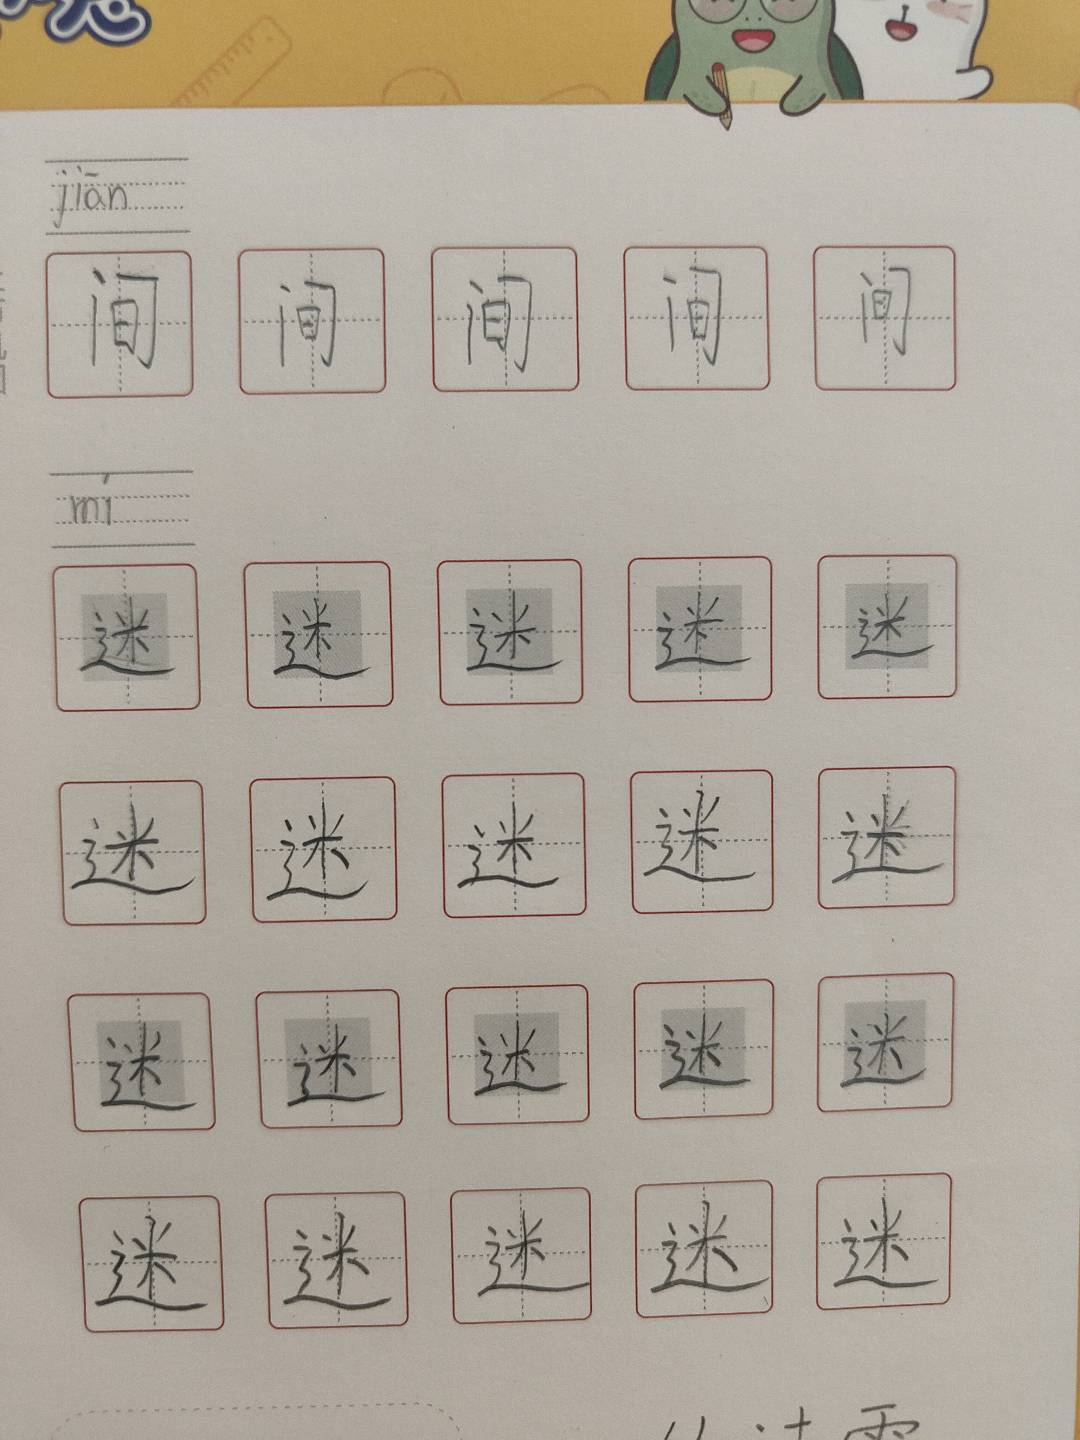 jiān
间 间 间 间 间
mí
迷 迷 迷 迷 迷
迷 迷 迷 迷 迷
迷 迷 迷 迷 迷
迷 迷 迷 迷 迷